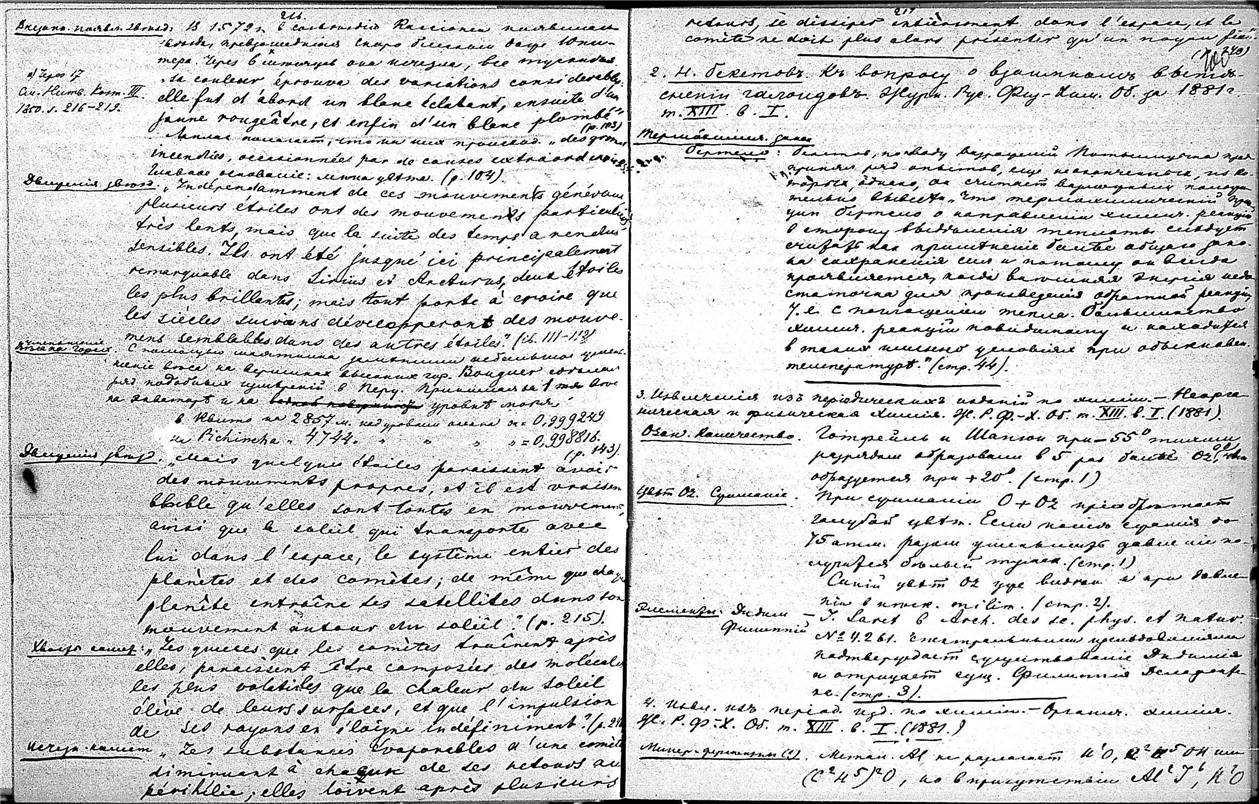 216.
Внезапн. появл. звезд. В 1572 г. в созвездіи Кассіопеи появилась
звезда, превзошедшая скоро блеском даже Юпи-
тера. Через 6 месяцев она исчезла, все тускнея
x) Через 17
См. Humb. Kosm. III.
1850. s. 216-219.
„sa couleur éprouva des variations considérables
elle fut d'abord un blanc éclatant, ensuite d'un
jaune rougeâtre, et enfin d'un blanc plombé"
(p. 103)
Лаплас полагает, что на них происход. „des grands
incendies, occasionnées par de causes extraordinaires"
Главное основаніе: мена цвета. (p. 104).
Движенія звезд. „Indépendamment de ces mouvements généraux
plusieurs étoiles ont des mouvements particuliers
très lents, mais que la suite des temps a rendus
sensibles. Ils ont été jusque ici principalement
remarquable dans Sirius et Arcturus, deux étoiles
les plus brillantes; mais tout porte à croire que
les siècles suivans développeront des mouve-
mens semblables dans des autres étoiles." (ib. 111-112)
С помощью маятника замечали небольшое умень-
шение веса на вершинах высоких гор. Bouguer сделал
ряд подобных сравнений в Перу. Принимая за 1
на экваторе и на уровне моря,
в Квито на 2857 м. над уровн. океана = 0,999249
на Pichincha „ 4744. „ „ „ = 0,998816.
(p. 143)
Движенія звезд. „Mais quelque étoiles paraissent avoir
des mouvements propres, et il est vraisem-
blable qu'elles sont toutes en mouvement
ainsi que le soleil qui transporte avec
lui dans l'espace, le système entier des
planètes et des comètes; de même que chaque
planète entraîne ses satellites dans son
mouvement autour du soleil." (p. 215).
Хвосты комет: „Les queues que les comètes traînent après
elles, paraissent être composées des molécules
les plus volatiles que la chaleur du soleil
élève de leurs surfaces, et que l'impulsion
de ses rayons en éloigne indéfiniment."
Исчезн. комет „Les substances évaporables d'une comète
diminuant à chaque de ses retours au
périhélie; elles doivent après plusieurs
217
retours, se dissiper entièrement dans l'espace, et la
comète ne doit plus alors présenter qu'un noyau fixe.
100
2. Н. Бекетовъ. Къ вопросу о взаимномъ вытѣс-
неніи галоидовъ. Журн. Рус. Физ-Хим. Об. за 1881 г.
т. XIII в. I.
Термохимич. закон
Бертело: Бекетов, по поводу возраженій Потылицына пред-
принял ряд опытов, еще неоконченных, из ко-
торых, однако, он считает вероятным положи-
тельно вывести „что термохимическій прин-
цип Бертело о направленіи химич. реакцій
в сторону выделенія теплоты следует
считать как применение более общаго зако-
на сохраненія сил и потому он всегда
проявляется, когда внешняя энергия недо-
статочна для произведенія обратной реакціи
т. е. с поглощеніем тепла. Большинство
химич. реакцій повидимому и находится
в таких именно условіях при обыкновен.
температурѣ." (стр. 44).
3. Извлеченія изъ періодическихъ изданій по химіи. — Неорга-
ническая и физическая химія. Ж. Р. Ф-Х. Об. т. XIII. в. I (1881)
Озон. Количество. Готфейль и Шапюи при -55° тихими
разрядами образовали в 5 раз более Oz, чем
образуется при +20°. (стр. 1)
Цвет Oz. Сжиманіе. При сжиманіи O + Oz пріобретает
голубой цвет. Если после сжатія до
75 атм. разом уменьшить давленіе по-
лучится белый туман. (стр. 1)
Синій цвет Oz уже виден и при давле-
ніи в неск. milim. (стр. 2).
Элементы: Дидим —
Филиппій
J. Soret в Arch. des sc. phys. et natur
№ 4261. спектральными изследованіями
подтверждает существованіе Дидимія
и отрицает сущ. Филиппія Делафон-
тена. (стр. 3).
4. Извл. изъ період. изд. по химіи. — Органич. химія.
Ж. Р. Ф-Х. Об. т. XIII. в. I. (1881.)
Минер-ферменты (?). Метал. Al не разлагает H²O, C²H⁵OH или
(C²H⁵)²O, но в присутствіи Al²J⁶, H²O